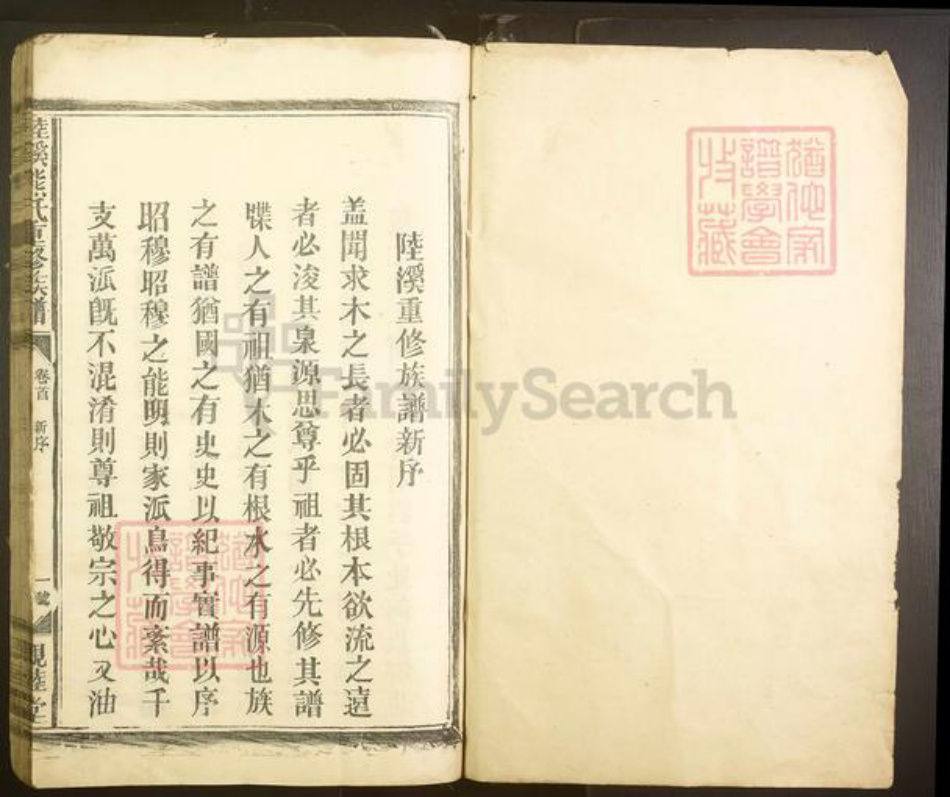 陸溪重修族譜新序
盖聞求木之長者必固其根本欲流之遠
者必浚其泉源思尊乎祖者必先修其譜
牒人之有祖猶木之有根水之有源也族
之有譜猶國之有史史以紀事實譜以序
昭穆昭穆之能明則家派烏得而紊哉千
支萬派旣不混淆則尊祖敬宗之心又油
陸溪熊氏重修族譜
卷首
新序
一號
親睦堂
FamilySearch